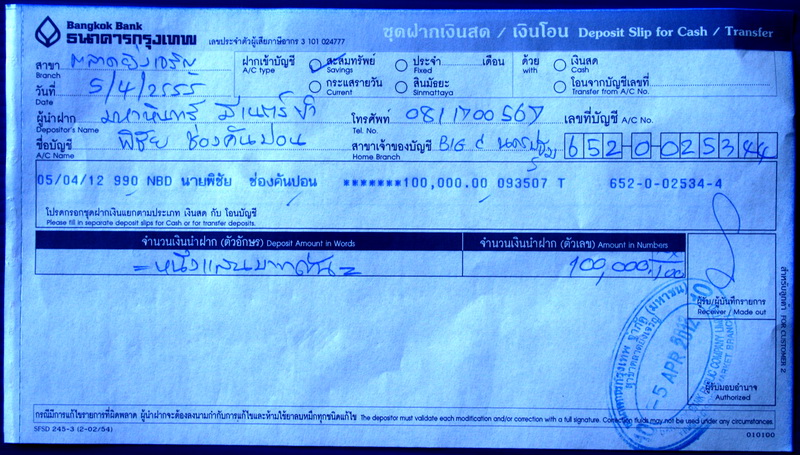 Bangkok Bank
ธนาคารกรุงเทพ
เลขประจำตัวผู้เสียภาษีอากร 3 101 024777
ชุดฝากเงินสด / เงินโอน Deposit Slip for Cash / Transfer
สาขา ตลาดยิ่งเจริญ
Branch
ฝากเข้าบัญชี สะสมทรัพย์ ประจำ เดือน ด้วย เงินสด
A/C type Savings Fixed with Cash
วันที่ 5/4/2555
Date
กระแสรายวัน สินมัธยะ โอนจากบัญชีเลขที่
Current Sinmattaya Transfer from A/C No.
ผู้นำฝาก มหาหินทร์ โทรศัพท์ 081 1700 567 เลขที่บัญชี A/C No.
Depositor's Name Tel. No.
ชื่อบัญชี พิชัย ช่องคันปอน สาขาเจ้าของบัญชี BIG C นครปฐม 652-0-02534-4
A/C Name Home Branch
05/04/12 990 NBD นายพิชัย ช่องคันปอน *******100,000.00 093507 T 652-0-02534-4
โปรดกรอกชุดฝากเงินแยกตามประเภท เงินสด กับ โอนบัญชี
Please fill in separate deposit slips for Cash or for transfer deposits.
จำนวนเงินนำฝาก (ตัวอักษร) Deposit Amount in Words จำนวนเงินนำฝาก (ตัวเลข) Amount in Numbers
= หนึ่งแสนบาทถ้วน = 100,000.
ผู้รับ/ผู้บันทึกรายการ
Receiver / Made out
สำหรับลูกค้า 1 FOR CUSTOMER 2
-5 APR 2012
ผู้รับมอบอำนาจ
Authorized
กรณีมีการแก้ไขรายการที่ผิดพลาด ผู้นำฝากจะต้องลงนามกำกับการแก้ไขและห้ามใช้ยาลบหมึกทุกชนิดแก้ไข The depositor must validate each modification and/or correction with a full signature. Correction fluids may not be used under any circumstances
SFSD 245-3 (2-02/54)
010100